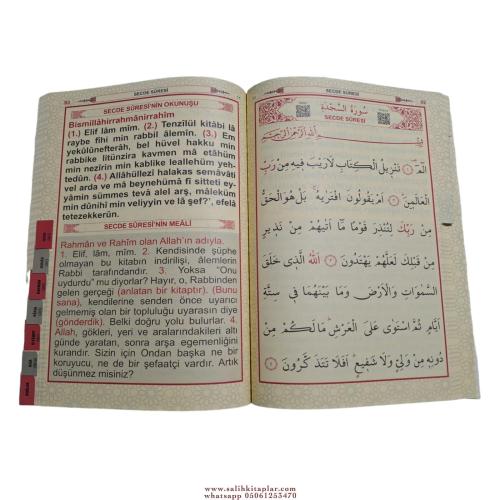 SECDE SÛRESİ
SECDE SÛRESİ'NİN OKUNUŞU
Bismillâhirrahmânirrahîm
(1.) Elif lâm mîm. (2.) Tenzîlül kitâbi lâ
raybe fîhi min rabbil âlemîn. (3.) Em
yekûlûnefterâh, bel hüvel hakku min
rabbike litünzira kavmen mâ etâhüm
min nezîrin min kablike leallehüm yeh-
tedûn. (4.) Allâhüllezî halakas semâvâti
vel arda ve mâ beynehümâ fî sitteti ey-
yâmin sümmes tevâ alel arş, mâleküm
min dûnihî min veliyyin ve lâ şefî', efelâ
tetezekkerûn.
SECDE SÛRESİ'NİN MEÂLİ
Rahmân ve Rahîm olan Allah'ın adıyla.
1. Elif, lâm, mîm. 2. Kendisinde şüphe
olmayan bu kitabın indirilişi, âlemlerin
Rabbi tarafındandır. 3. Yoksa "Onu
uydurdu" mu diyorlar? Hayır, o, Rabbinden
gelen gerçeği (anlatan bir kitaptır). (Bunu
sana), kendilerine senden önce uyarıcı
gelmemiş olan bir topluluğu uyarasın diye
(gönderdik). Belki doğru yolu bulurlar. 4.
Allah, gökleri, yeri ve aralarındakileri altı
günde yaratan, sonra arşa egemenliğini
kurandır. Sizin için Ondan başka ne bir
koruyucu, ne de bir şefaatçi vardır. Artık
düşünmez misiniz?
SECDE SÛRESİ
سُورَةُ السَّجْدَةِ
SECDE SÛRESİ
بِسْمِ اللّٰهِ الرَّحْمٰنِ الرَّحِيمِ
الٓمٓ ١ تَنْزِيلُ الْكِتَابِ لَا رَيْبَ فِيهِ مِنْ رَبِّ
الْعَالَمِينَ ٢ اَمْ يَقُولُونَ افْتَرٰيهُ بَلْ هُوَ الْحَقُّ
مِنْ رَبِّكَ لِتُنْذِرَ قَوْمًا مَٓا اَتٰيهُمْ مِنْ نَذِيرٍ
مِنْ قَبْلِكَ لَعَلَّهُمْ يَهْتَدُونَ ٣ اَللّٰهُ الَّذِي خَلَقَ
السَّمٰوَاتِ وَالْاَرْضَ وَمَا بَيْنَهُمَا فِي سِتَّةِ
اَيَّامٍ ثُمَّ اسْتَوٰى عَلَى الْعَرْشِ مَا لَكُمْ مِنْ
دُونِهِ مِنْ وَلِيٍّ وَلَا شَفِيعٍ اَفَلَا تَتَذَكَّرُونَ ٤
www.salihkitaplar.com
whatsapp 05061253470